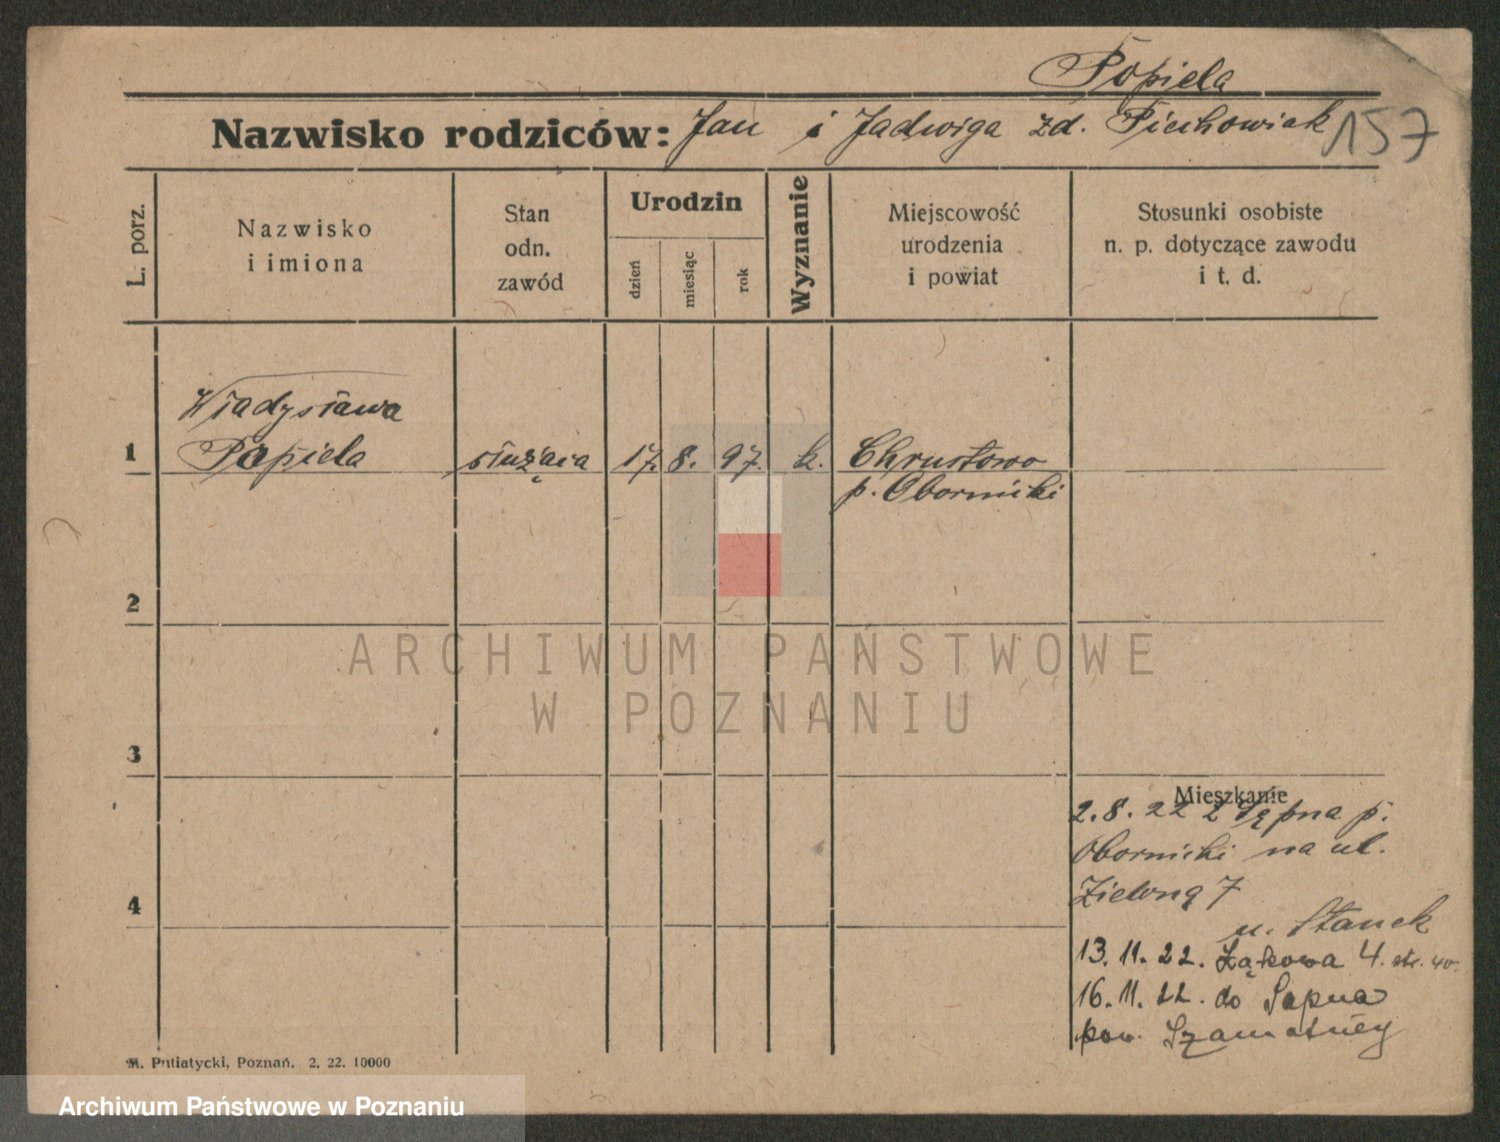 Popiela
Nazwisko rodziców: Jan i Jadwiga zd. Piechowiak 157
L. porz.
Nazwisko
i imiona
Stan
odn.
zawód
Urodzin
dzień
miesiąc
rok
Wyznanie
Miejscowość
urodzenia
i powiat
Stosunki osobiste
n. p. dotyczące zawodu
i t. d.
Władysława
1 Popiela służąca 17. 8. 97. k. Chrustowo
p. Oborniki
2
3
Mieszkanie
2.8.22 z p.
Oborniki na ul.
4 Zieloną 7
u. Stanek
13. 11. 22. Łąkowa 4.
16. 11. 22. do
pow. Szamotuły
M. Putiatycki, Poznań. 2, 22. 10000
ARCHIWUM PAŃSTWOWE
W POZNANIU
Archiwum Państwowe w Poznaniu